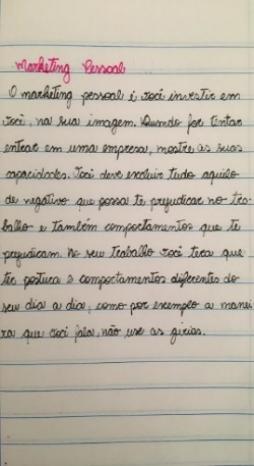 Marketing Pessoal
O marketing pessoal é você investir em
você, na sua imagem. Quando for tentar
entrar em uma empresa, mostre as suas
capacidades. Você deve excluir tudo aquilo
de negativo que possa te prejudicar no tra-
balho e também comportamentos que te
prejudicam. No seu trabalho você tera que
ter postura e comportamentos diferentes do
seu dia a dia, como por exemplo a manei-
ra que você fala, não use as gírias.